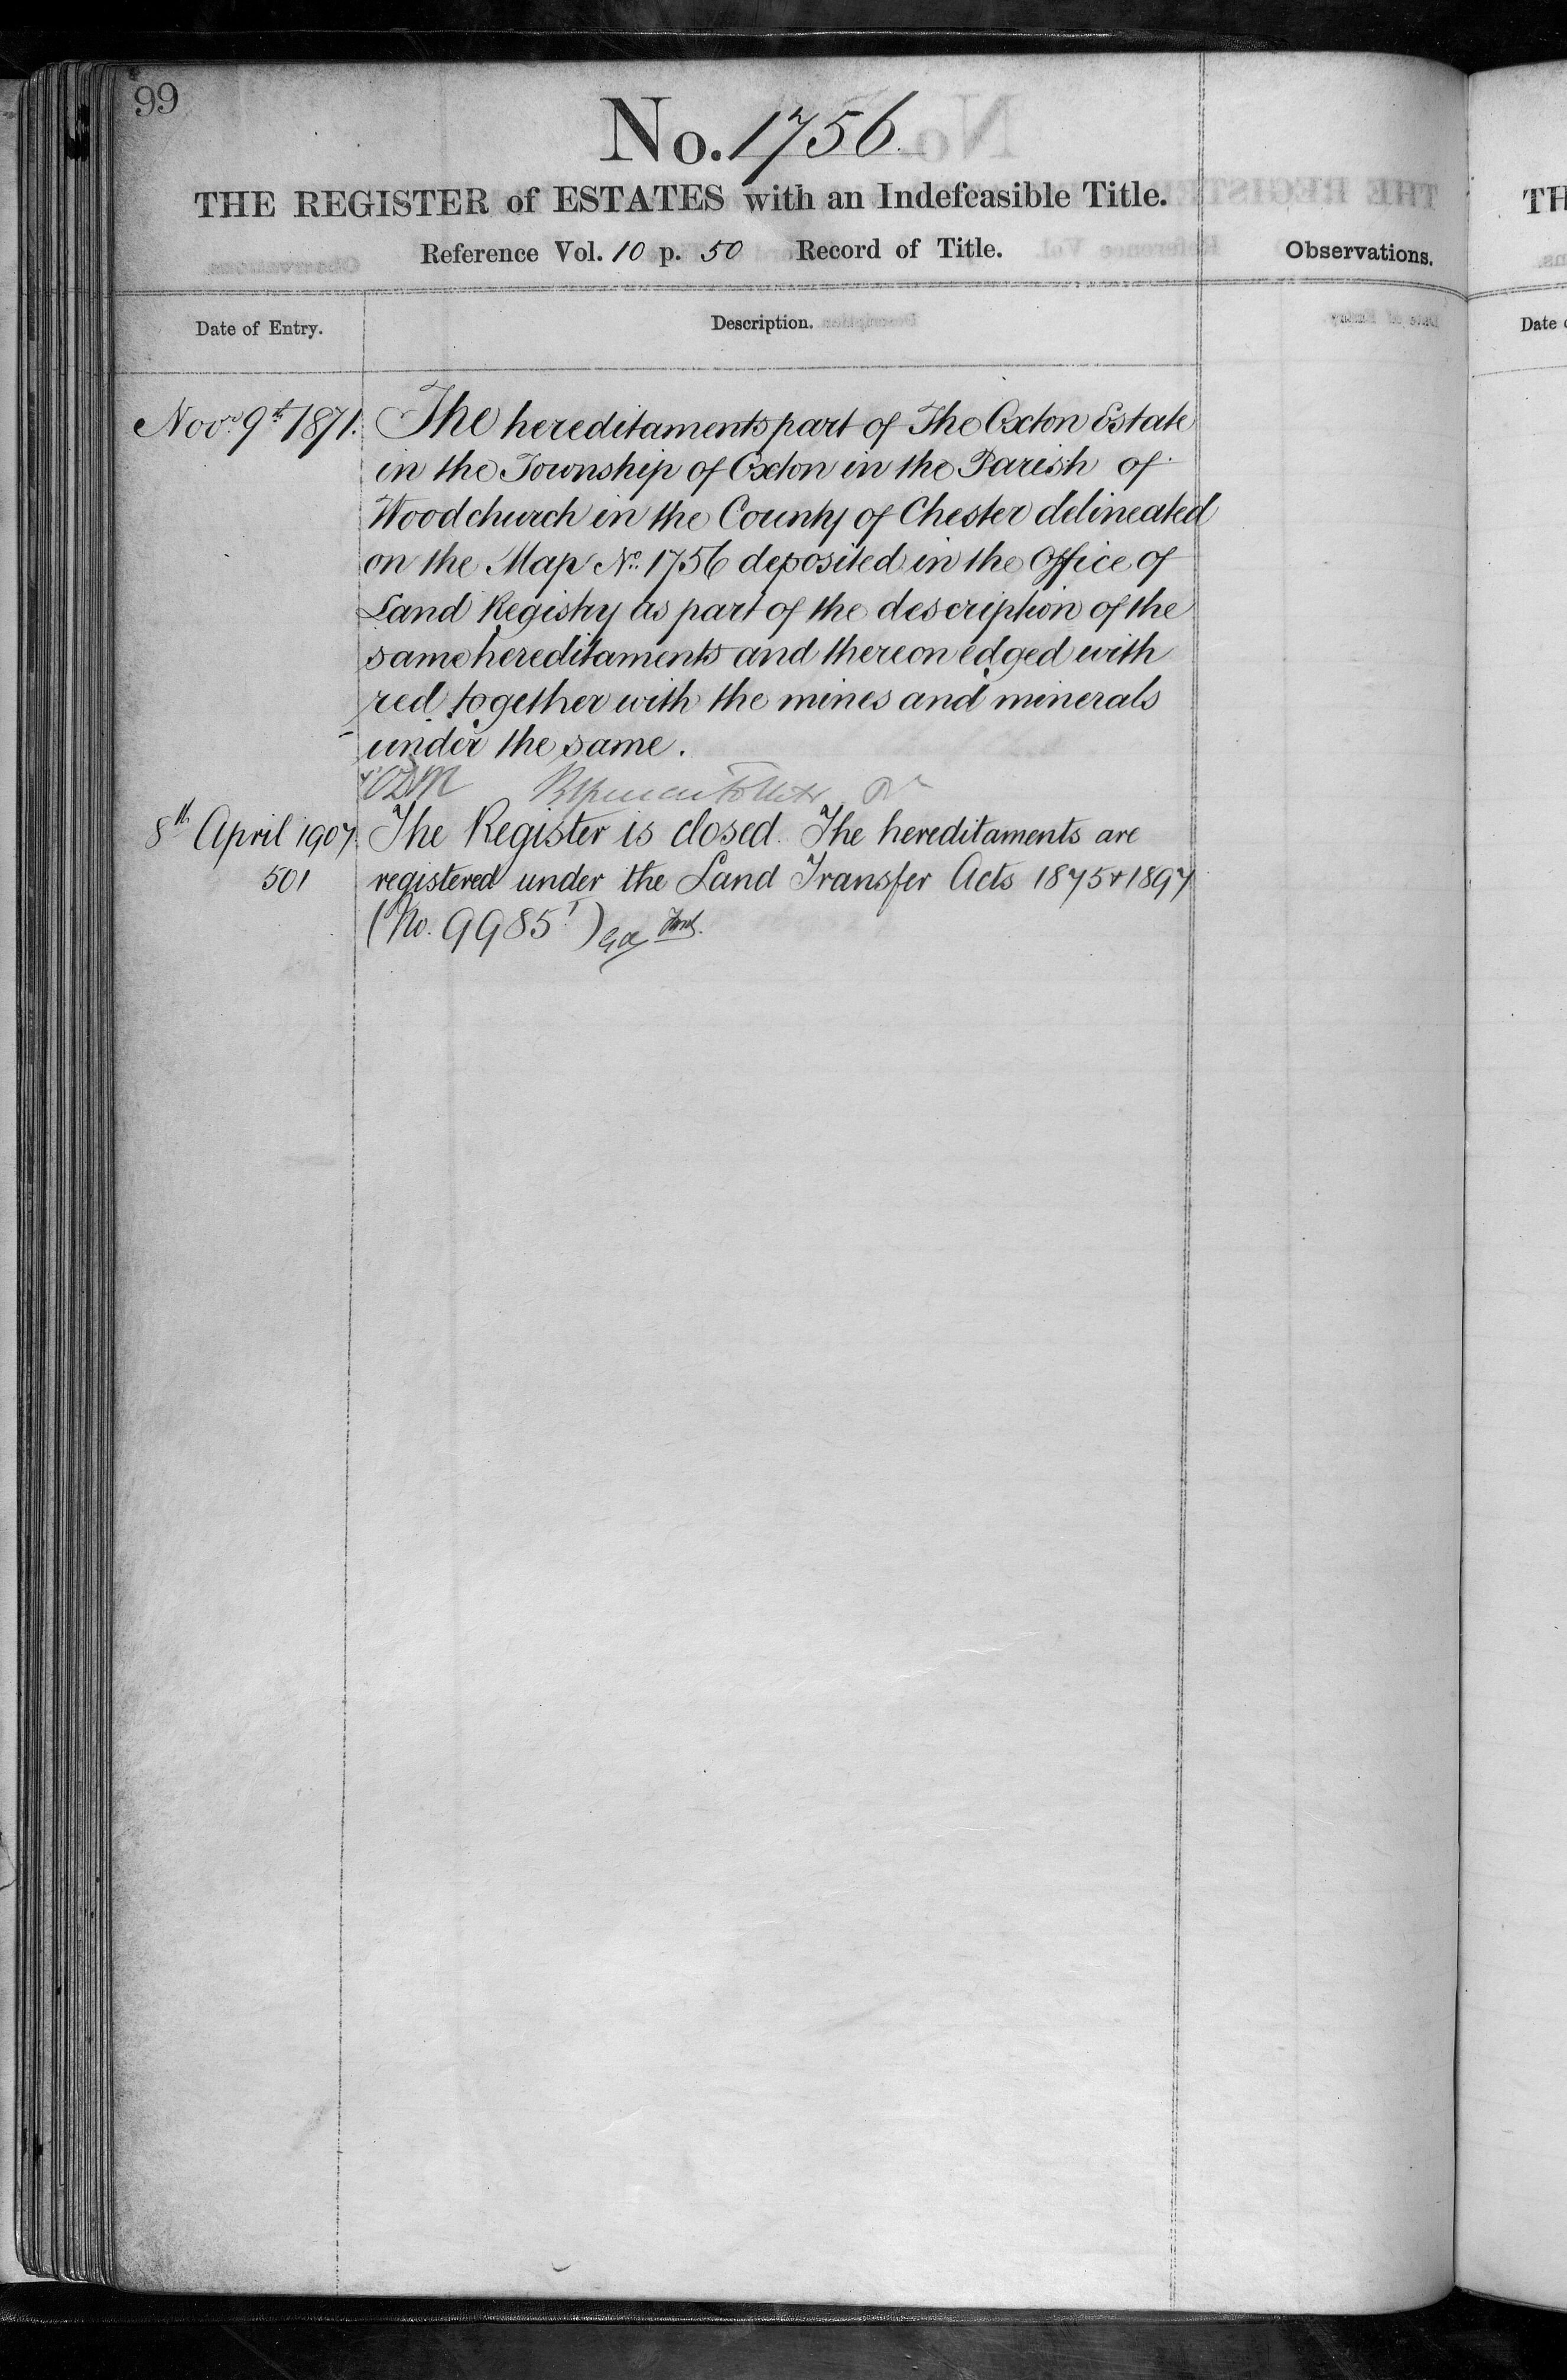 99
No. 1756
THE REGISTER of ESTATES with an Indefeasible Title.
Reference Vol. 10 p. 50 Record of Title.
Observations.
Date of Entry.
Description.
Novr. 9th 1871.
The hereditaments part of The Oxton Estate
in the Township of Oxton in the Parish of
Woodchurch in the County of Chester delineated
on the Map No. 1756 deposited in the Office of
Land Registry as part of the description of the
same hereditaments and thereon edged with
red together with the mines and minerals
under the same.
8th April 1907.
501
The Register is closed. The hereditaments are
registered under the Land Transfer Acts 1875 & 1897
(No. 9985)
TH
Date